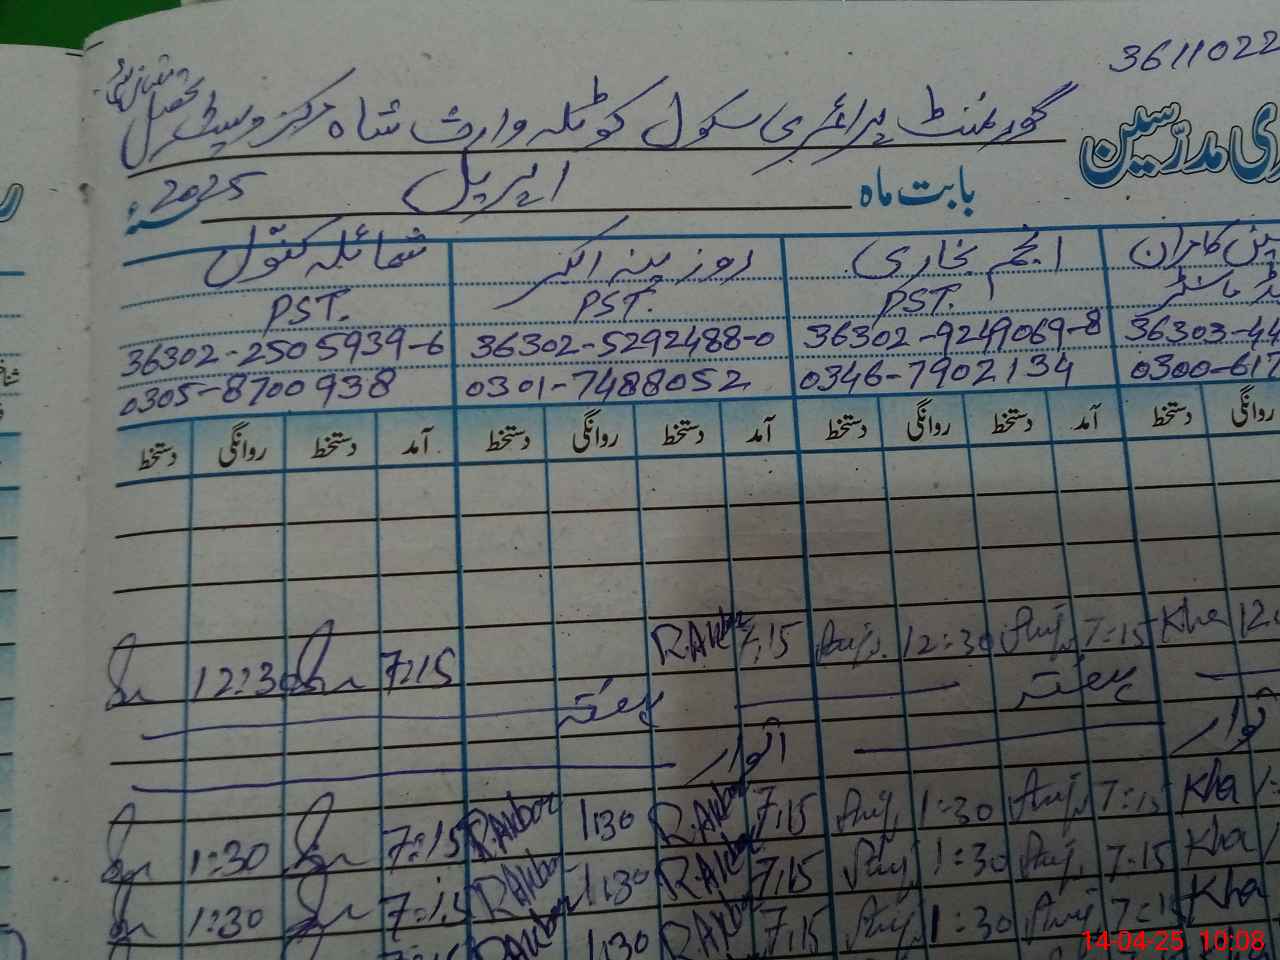 3611022
گورنمنٹ پرائمری سکول کوٹلہ وارث شاہ مرکز وسطی تحصیل
ری مدرّسین
بابت ماہ اپریل 2025
انجم بخاری روزینہ اکبر شمائلہ کنول
PST. PST. PST.
36303-44 36302-9249069-8 36302-5292488-0 36302-2505939-6
0300-617 0346-7902134 0301-7488052 0305-8700938
روانگی دستخط آمد دستخط روانگی دستخط آمد دستخط روانگی دستخط آمد دستخط روانگی دستخط
Kha 7:15 Anj. 12:30 Anj. 7:15 R.Akbar 7:15 12:30
ہفتہ ہفتہ
اتوار اتوار
Kha 7:15 Anj. 1:30 Anj. 7:15 R.Akbar 1:30 R.Akbar 7:15 1:30
Kha 7:15 Anj. 1:30 Anj. 7:15 R.Akbar 1:30 R.Akbar 7:15 1:30
Kha 7:15 Anj. 1:30 Anj. 7:15 R.Akbar 1:30 R.Akbar
14-04-25 10:08